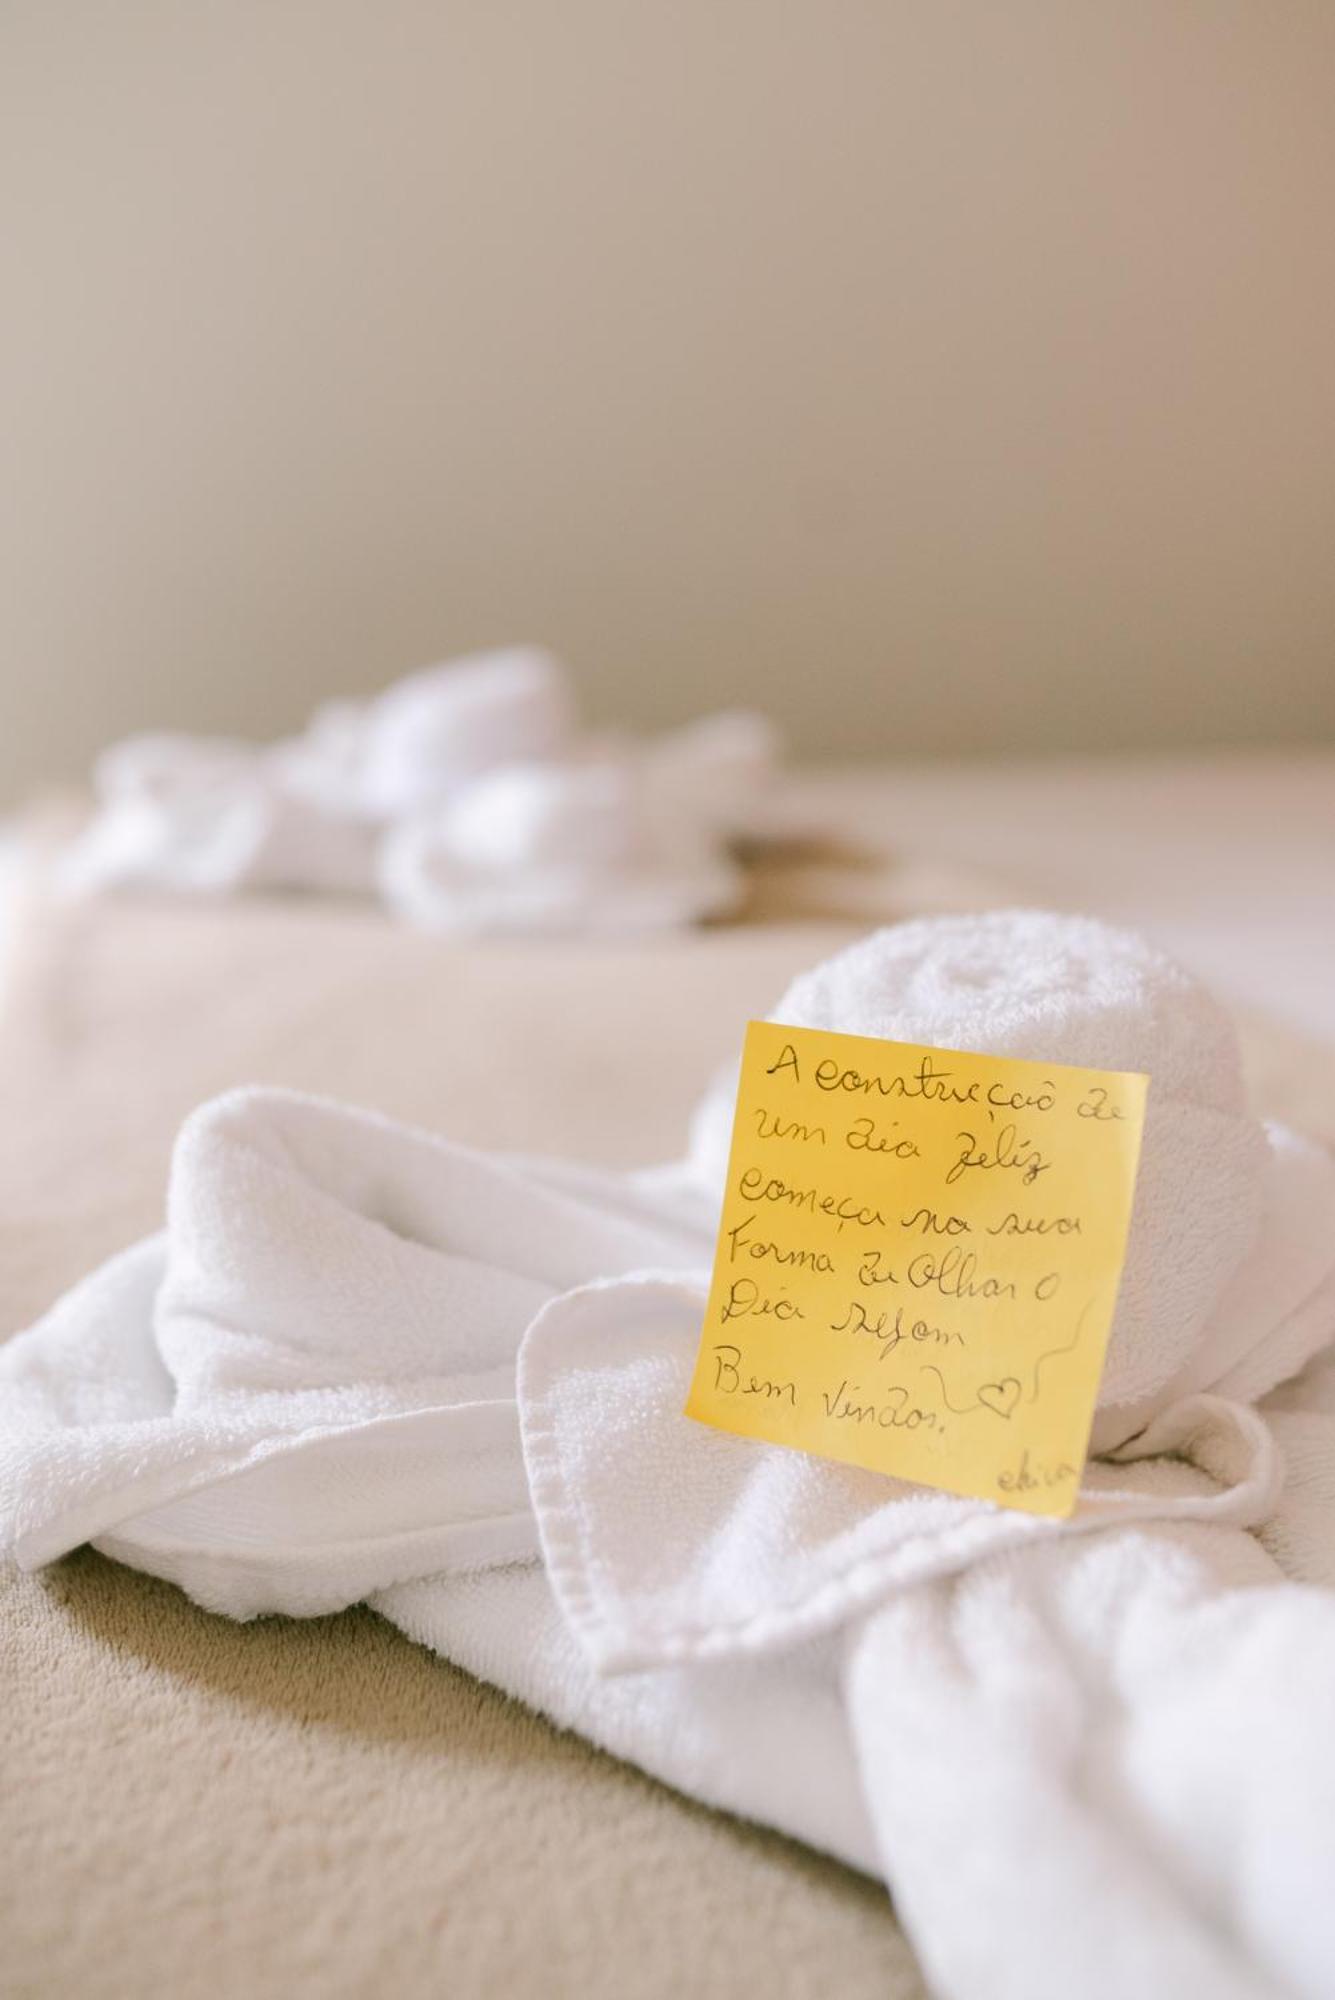 A construção de
um dia feliz
começa na sua
Forma de Olhar o
Dia sejam
Bem Vindos.
erica